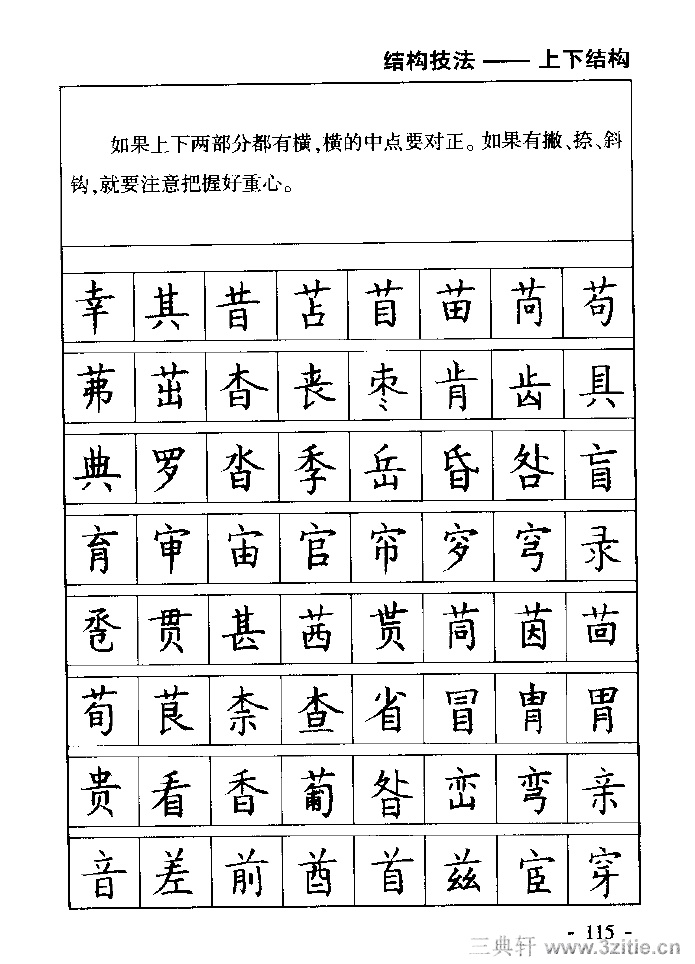 结构技法 —— 上下结构
如果上下两部分都有横,横的中点要对正。如果有撇、捺、斜
钩,就要注意把握好重心。
幸 其 昔 苫 苜 苗 苘 苟
茀 茁 杳 丧 枣 肯 齿 具
典 罗 沓 季 岳 昏 咎 盲
育 审 宙 官 帘 穸 穹 录
卺 贯 甚 茜 贳 茼 茵 茴
荀 茛 柰 查 省 冒 胄 胃
贵 看 香 葡 昝 峦 弯 亲
音 差 前 酋 首 兹 宦 穿
- 115 -
三典轩 www.3zitie.cn